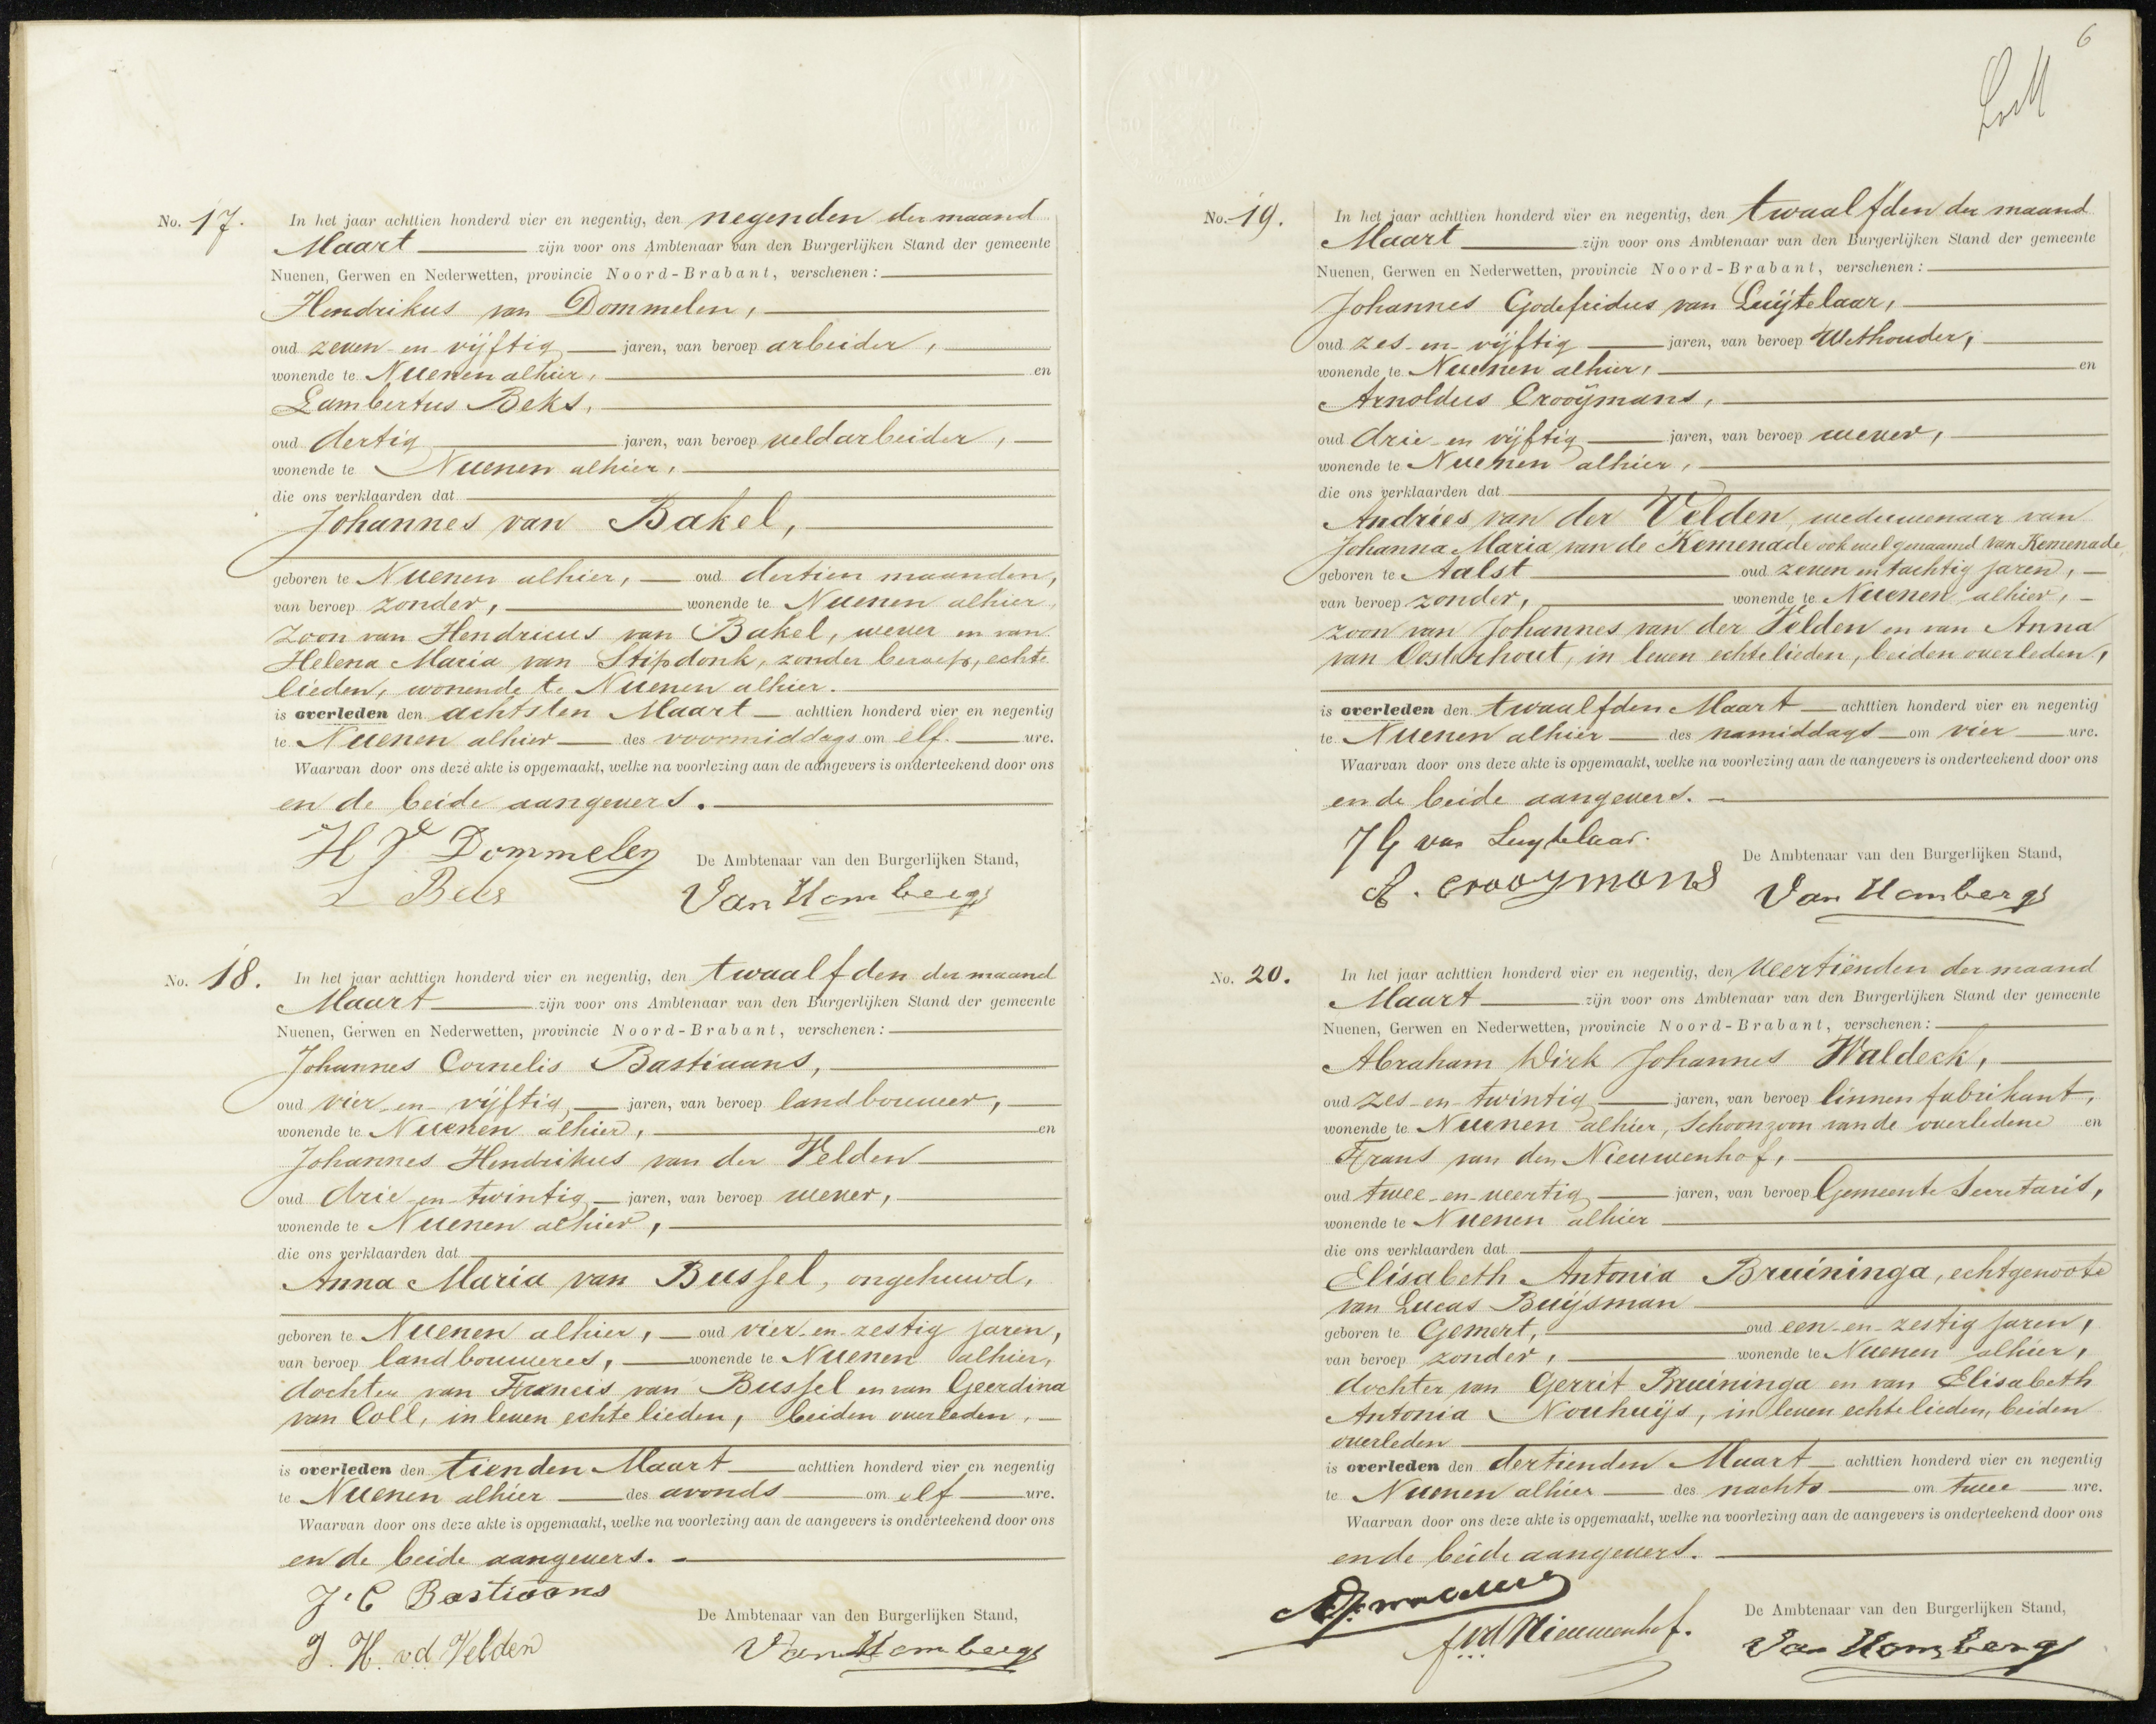 No. 17. In het jaar achttien honderd vier en negentig, den negenden der maand
Maart zijn voor ons Ambtenaar van den Burgerlijken Stand der gemeente
Nuenen, Gerwen en Nederwetten, provincie Noord-Brabant, verschenen:
Hendrikus van Dommelen,
oud zeven-en-vijftig jaren, van beroep arbeider,
wonende te Nuenen alhier, en
Lambertus Beks,
oud dertig jaren, van beroep veldarbeider,
wonende te Nuenen alhier,
die ons verklaarden dat
Johannes van Bakel,
geboren te Nuenen alhier, oud dertien maanden,
van beroep zonder, wonende te Nuenen alhier,
zoon van Hendricus van Bakel, wever en van
Helena Maria van Stipdonk, zonder beroep, echte
lieden, wonende te Nuenen alhier.
is overleden den achtsten Maart achttien honderd vier en negentig
te Nuenen alhier des voormiddags om elf ure.
Waarvan door ons deze akte is opgemaakt, welke na voorlezing aan de aangevers is onderteekend door ons
en de beide aangevers.
H V Dommelen
De Ambtenaar van den Burgerlijken Stand,
L Beks
Van Hombergh
No. 18. In het jaar achttien honderd vier en negentig, den twaalfden der maand
Maart zijn voor ons Ambtenaar van den Burgerlijken Stand der gemeente
Nuenen, Gerwen en Nederwetten, provincie Noord-Brabant, verschenen:
Johannes Cornelis Bastiaans,
oud vier-en-vijftig jaren, van beroep landbouwer,
wonende te Nuenen alhier, en
Johannes Hendrikus van der Velden
oud drie-en-twintig jaren, van beroep wever,
wonende te Nuenen alhier,
die ons verklaarden dat
Anna Maria van Bussel, ongehuwd,
geboren te Nuenen alhier, oud vier-en-zestig jaren,
van beroep landbouweres, wonende te Nuenen alhier,
dochter van Francis van Bussel en van Geerdina
van Coll, in leven echtelieden, beiden overleden,
is overleden den tienden Maart achttien honderd vier en negentig
te Nuenen alhier des avonds om elf ure.
Waarvan door ons deze akte is opgemaakt, welke na voorlezing aan de aangevers is onderteekend door ons
en de beide aangevers.
J. C Bastiaans
De Ambtenaar van den Burgerlijken Stand,
J. H. v.d. Velden
Van Hombergh
6
No. 19. In het jaar achttien honderd vier en negentig, den twaalfden der maand
Maart zijn voor ons Ambtenaar van den Burgerlijken Stand der gemeente
Nuenen, Gerwen en Nederwetten, provincie Noord-Brabant, verschenen:
Johannes Godefridus van Luijtelaar,
oud zes-en-vijftig jaren, van beroep Wethouder,
wonende te Nuenen alhier, en
Arnoldus Crooijmans,
oud drie-en-vijftig jaren, van beroep wever,
wonende te Nuenen alhier,
die ons verklaarden dat
Andries van der Velden, weduwenaar van
Johanna Maria van de Kemenade ook wel genaamd van Kemenade,
geboren te Aalst oud zeven en tachtig jaren,
van beroep zonder, wonende te Nuenen alhier,
zoon van Johannes van der Velden en van Anna
van Oosterhout, in leven echtelieden, beiden overleden,
is overleden den twaalfden Maart achttien honderd vier en negentig
te Nuenen alhier des namiddags om vier ure.
Waarvan door ons deze akte is opgemaakt, welke na voorlezing aan de aangevers is onderteekend door ons
en de beide aangevers.
J G van Luytelaar.
De Ambtenaar van den Burgerlijken Stand,
A. Crooymans
Van Hombergh
No. 20. In het jaar achttien honderd vier en negentig, den veertienden der maand
Maart zijn voor ons Ambtenaar van den Burgerlijken Stand der gemeente
Nuenen, Gerwen en Nederwetten, provincie Noord-Brabant, verschenen:
Abraham Dirk Johannes Waldeck,
oud zes-en-twintig jaren, van beroep linnenfabrikant,
wonende te Nuenen alhier, Schoonzoon van de overledene en
Frans van den Nieuwenhof,
oud twee-en-veertig jaren, van beroep Gemeente Secretaris,
wonende te Nuenen alhier
die ons verklaarden dat
Elisabeth Antonia Bruininga, echtgenoote
van Lucas Buijsman
geboren te Gemert, oud een-en-zestig jaren,
van beroep zonder, wonende te Nuenen alhier,
dochter van Gerrit Bruininga en van Elisabeth
Antonia Nouhuijs, in leven echtelieden, beiden
overleden
is overleden den dertienden Maart achttien honderd vier en negentig
te Nuenen alhier des nachts om twee ure.
Waarvan door ons deze akte is opgemaakt, welke na voorlezing aan de aangevers is onderteekend door ons
en de beide aangevers.
De Ambtenaar van den Burgerlijken Stand,
f.v.d. Nieuwenhof.
Van Hombergh